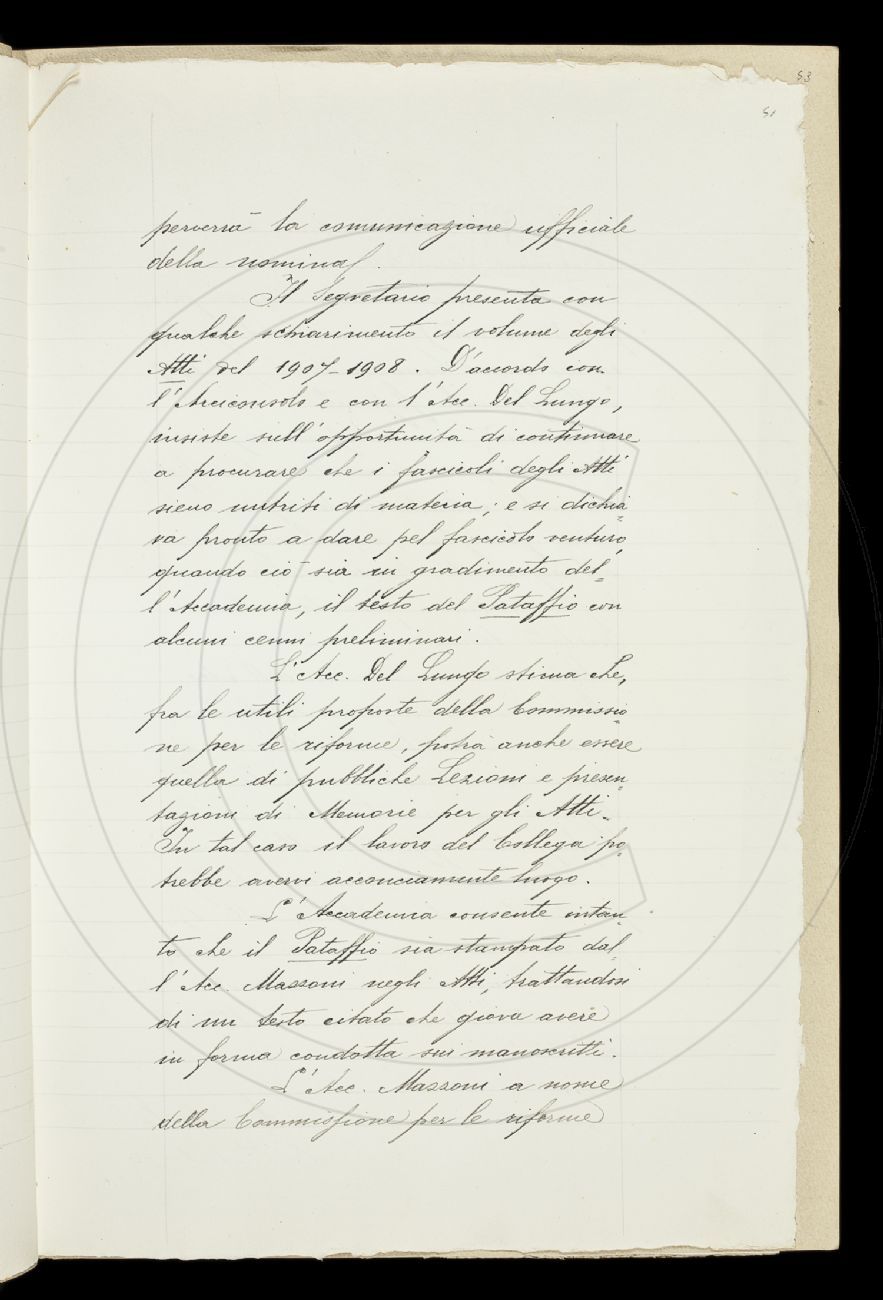 53
51
perverrà la comunicazione ufficiale
della nomina.
Il Segretario presenta con
qualche schiarimento il volume degli
Atti del 1907-1908. D'accordo con
l'Arciconsolo e con l'Acc. Del Lungo,
insiste sull'opportunità di continuare
a procurare che i fascicoli degli Atti
sieno nutriti di materia; e si dichia=
va pronto a dare pel fascicolo venturo,
quando ciò sia in gradimento del=
l'Accademia, il testo del Pataffio con
alcuni cenni preliminari.
L'Acc. Del Lungo stima che,
fra le utili proposte della Commissio=
ne per le riforme, potrà anche essere
quella di pubbliche Lezioni e presen=
tazioni di Memorie per gli Atti.
In tal caso il lavoro del Collega po=
trebbe avervi acconciamente luogo.
L'Accademia consente intan=
to che il Pataffio sia stampato dal=
l'Acc. Mazzoni negli Atti, trattandosi
di un testo citato che giova avere
in forma condotta sui manoscritti.
L'Acc. Mazzoni a nome
della Commissione per le riforme